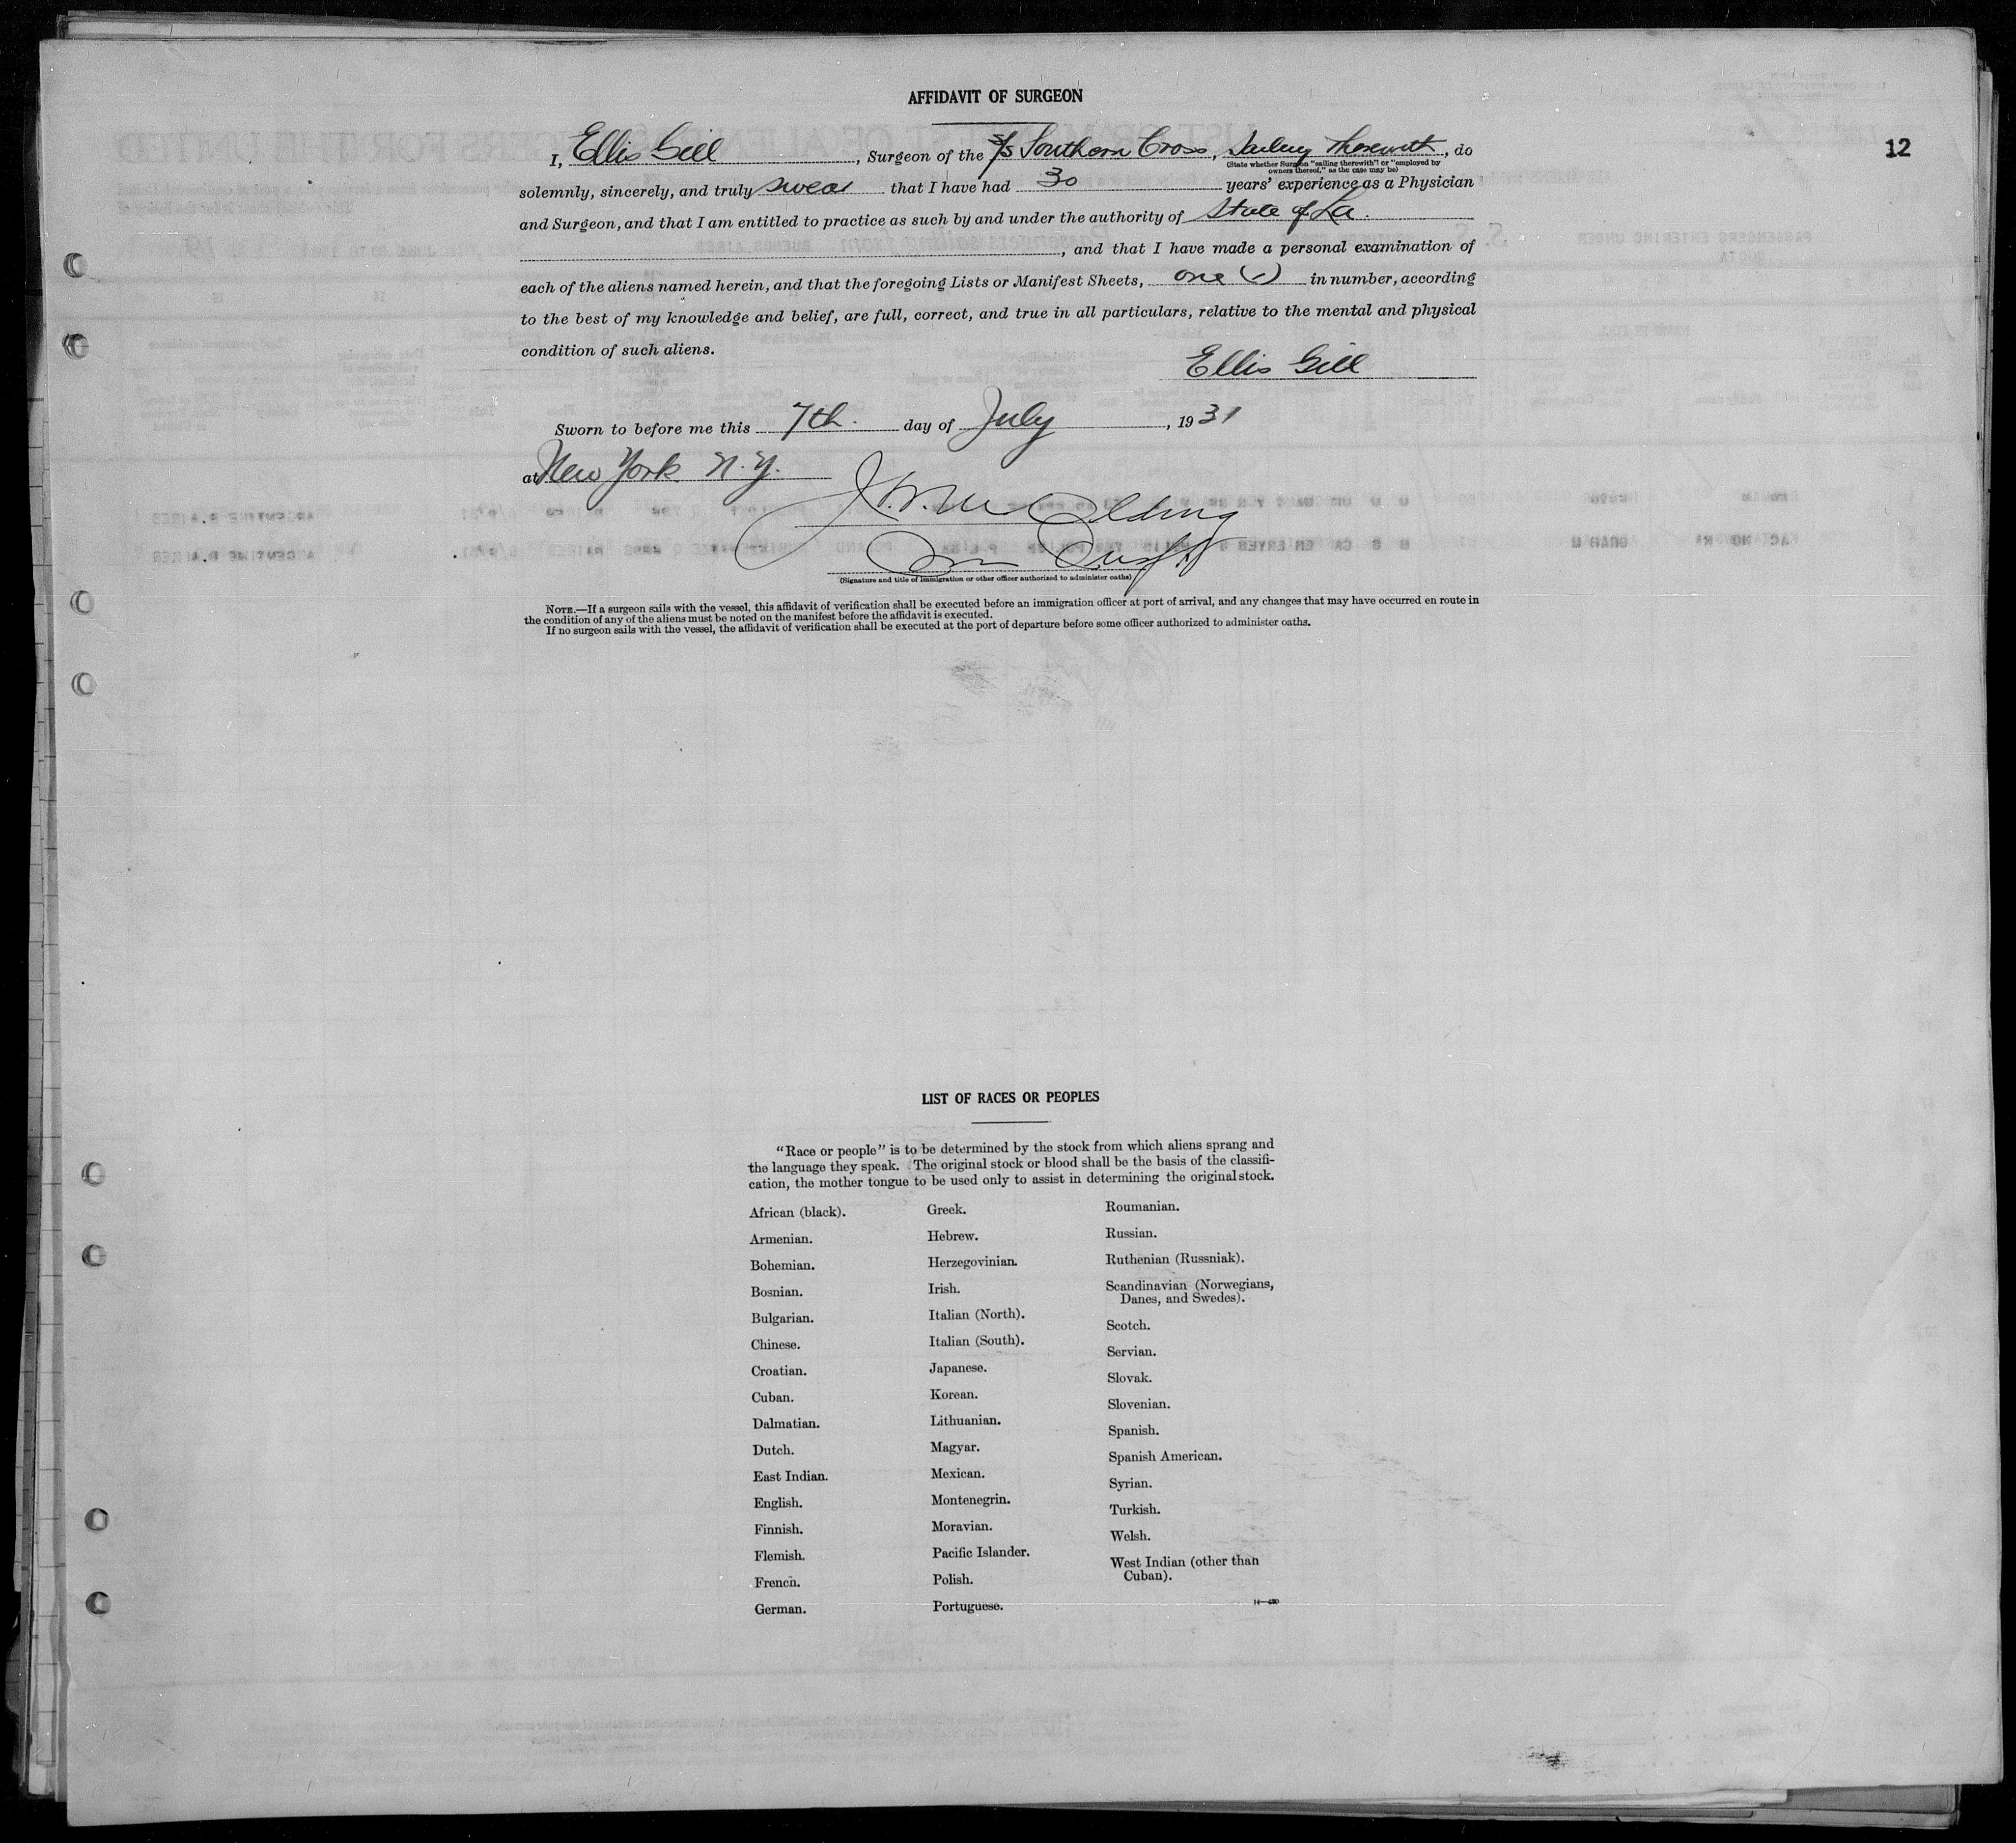 AFFIDAVIT OF SURGEON
12
I, Ellis Gill, Surgeon of the S/S Southern Cross, Sailing Therewith, do
(State whether Surgeon "sailing therewith" or "employed by
owners thereof," as the case may be)
solemnly, sincerely, and truly swear that I have had 30 years' experience as a Physician
and Surgeon, and that I am entitled to practice as such by and under the authority of State of La.
, and that I have made a personal examination of
each of the aliens named herein, and that the foregoing Lists or Manifest Sheets, one (1) in number, according
to the best of my knowledge and belief, are full, correct, and true in all particulars, relative to the mental and physical
condition of such aliens.
Ellis Gill
Sworn to before me this 7th. day of July, 1931
at New York N.Y.
(Signature and title of immigration or other officer authorized to administer oaths)
NOTE.—If a surgeon sails with the vessel, this affidavit of verification shall be executed before an immigration officer at port of arrival, and any changes that may have occurred en route in
the condition of any of the aliens must be noted on the manifest before the affidavit is executed.
If no surgeon sails with the vessel, the affidavit of verification shall be executed at the port of departure before some officer authorized to administer oaths.
LIST OF RACES OR PEOPLES
"Race or people" is to be determined by the stock from which aliens sprang and
the language they speak. The original stock or blood shall be the basis of the classifi-
cation, the mother tongue to be used only to assist in determining the original stock.
African (black).
Armenian.
Bohemian.
Bosnian.
Bulgarian.
Chinese.
Croatian.
Cuban.
Dalmatian.
Dutch.
East Indian.
English.
Finnish.
Flemish.
French.
German.
Greek.
Hebrew.
Herzegovinian.
Irish.
Italian (North).
Italian (South).
Japanese.
Korean.
Lithuanian.
Magyar.
Mexican.
Montenegrin.
Moravian.
Pacific Islander.
Polish.
Portuguese.
Roumanian.
Russian.
Ruthenian (Russniak).
Scandinavian (Norwegians,
Danes, and Swedes).
Scotch.
Servian.
Slovak.
Slovenian.
Spanish.
Spanish American.
Syrian.
Turkish.
Welsh.
West Indian (other than
Cuban).